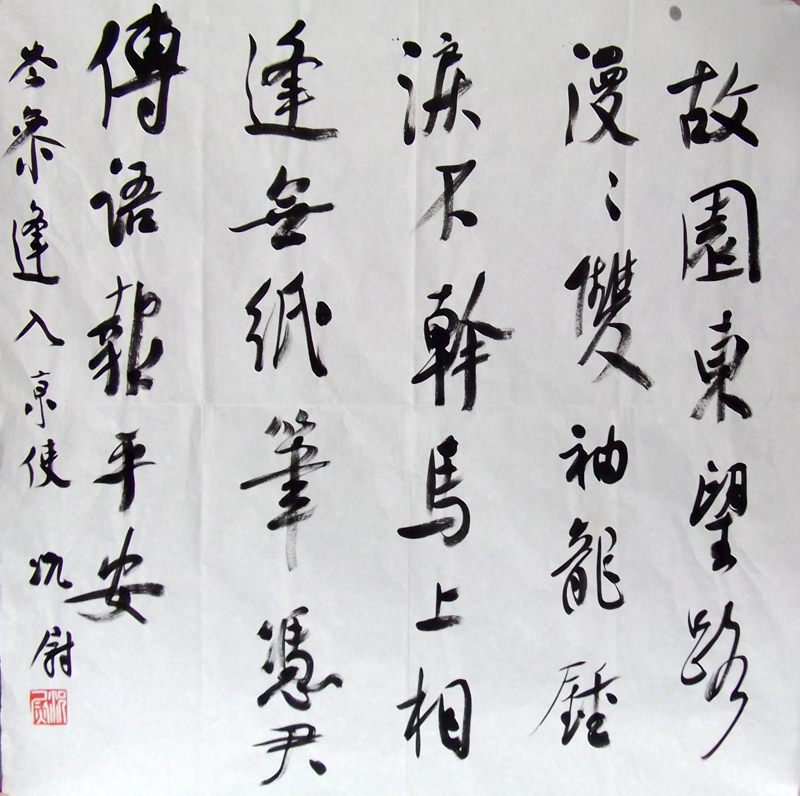 故園東望路
漫〻雙袖龍鍾
淚不幹馬上相
逢無紙筆憑君
傳语報平安
岑參逢入京使 況尉